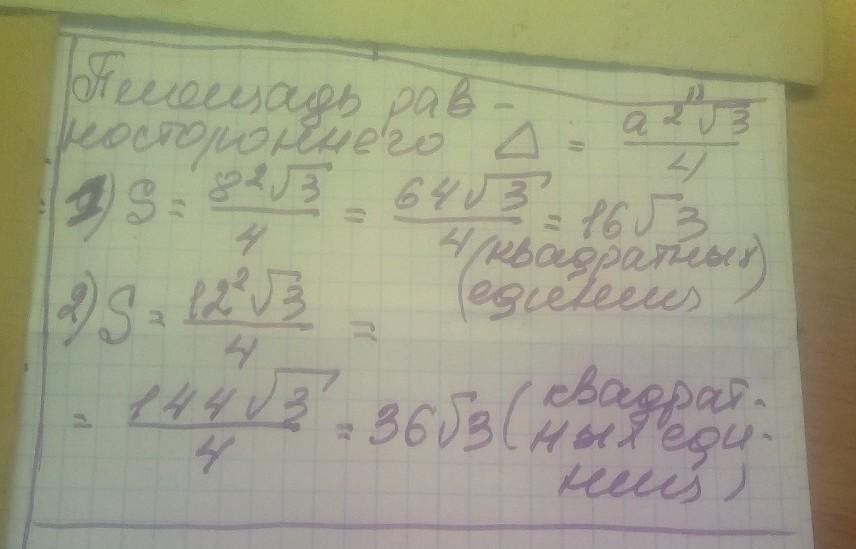 Площадь рав-
ностороннего Δ = a²√3/4
1) S = 8²√3/4 = 64√3/4 = 16√3
(квадратных
единиц)
2) S = 12²√3/4 =
= 144√3/4 = 36√3 (квадрат-
ных еди-
ниц)